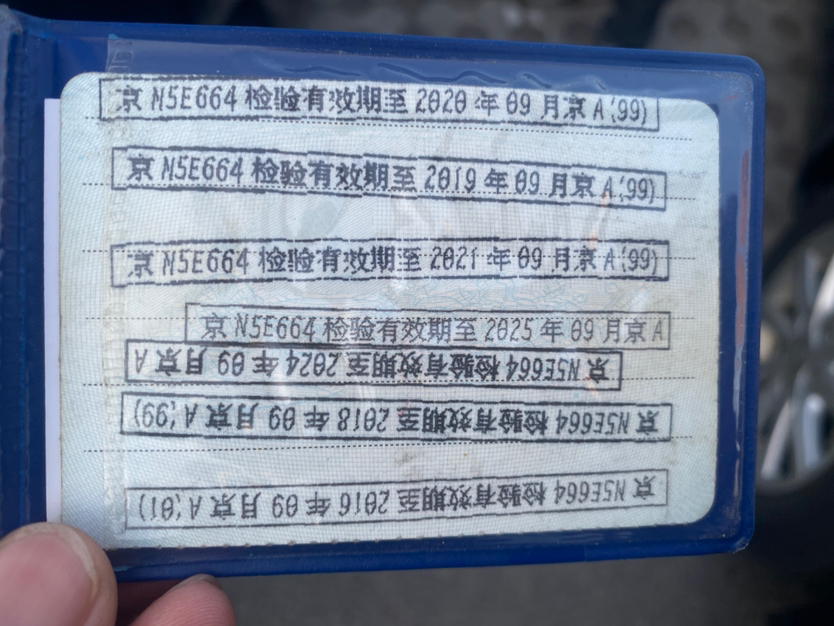 京 N5E664 检验有效期至 2020 年 09 月京 A(99)
京 N5E664 检验有效期至 2019 年 09 月京 A(99)
京 N5E664 检验有效期至 2021 年 09 月京 A(99)
京 N5E664 检验有效期至 2025 年 09 月京 A
京 N5E664 检验有效期至 2024 年 09 月京 A
京 N5E664 检验有效期至 2018 年 09 月京 A(99)
京 N5E664 检验有效期至 2016 年 09 月京 A(01)